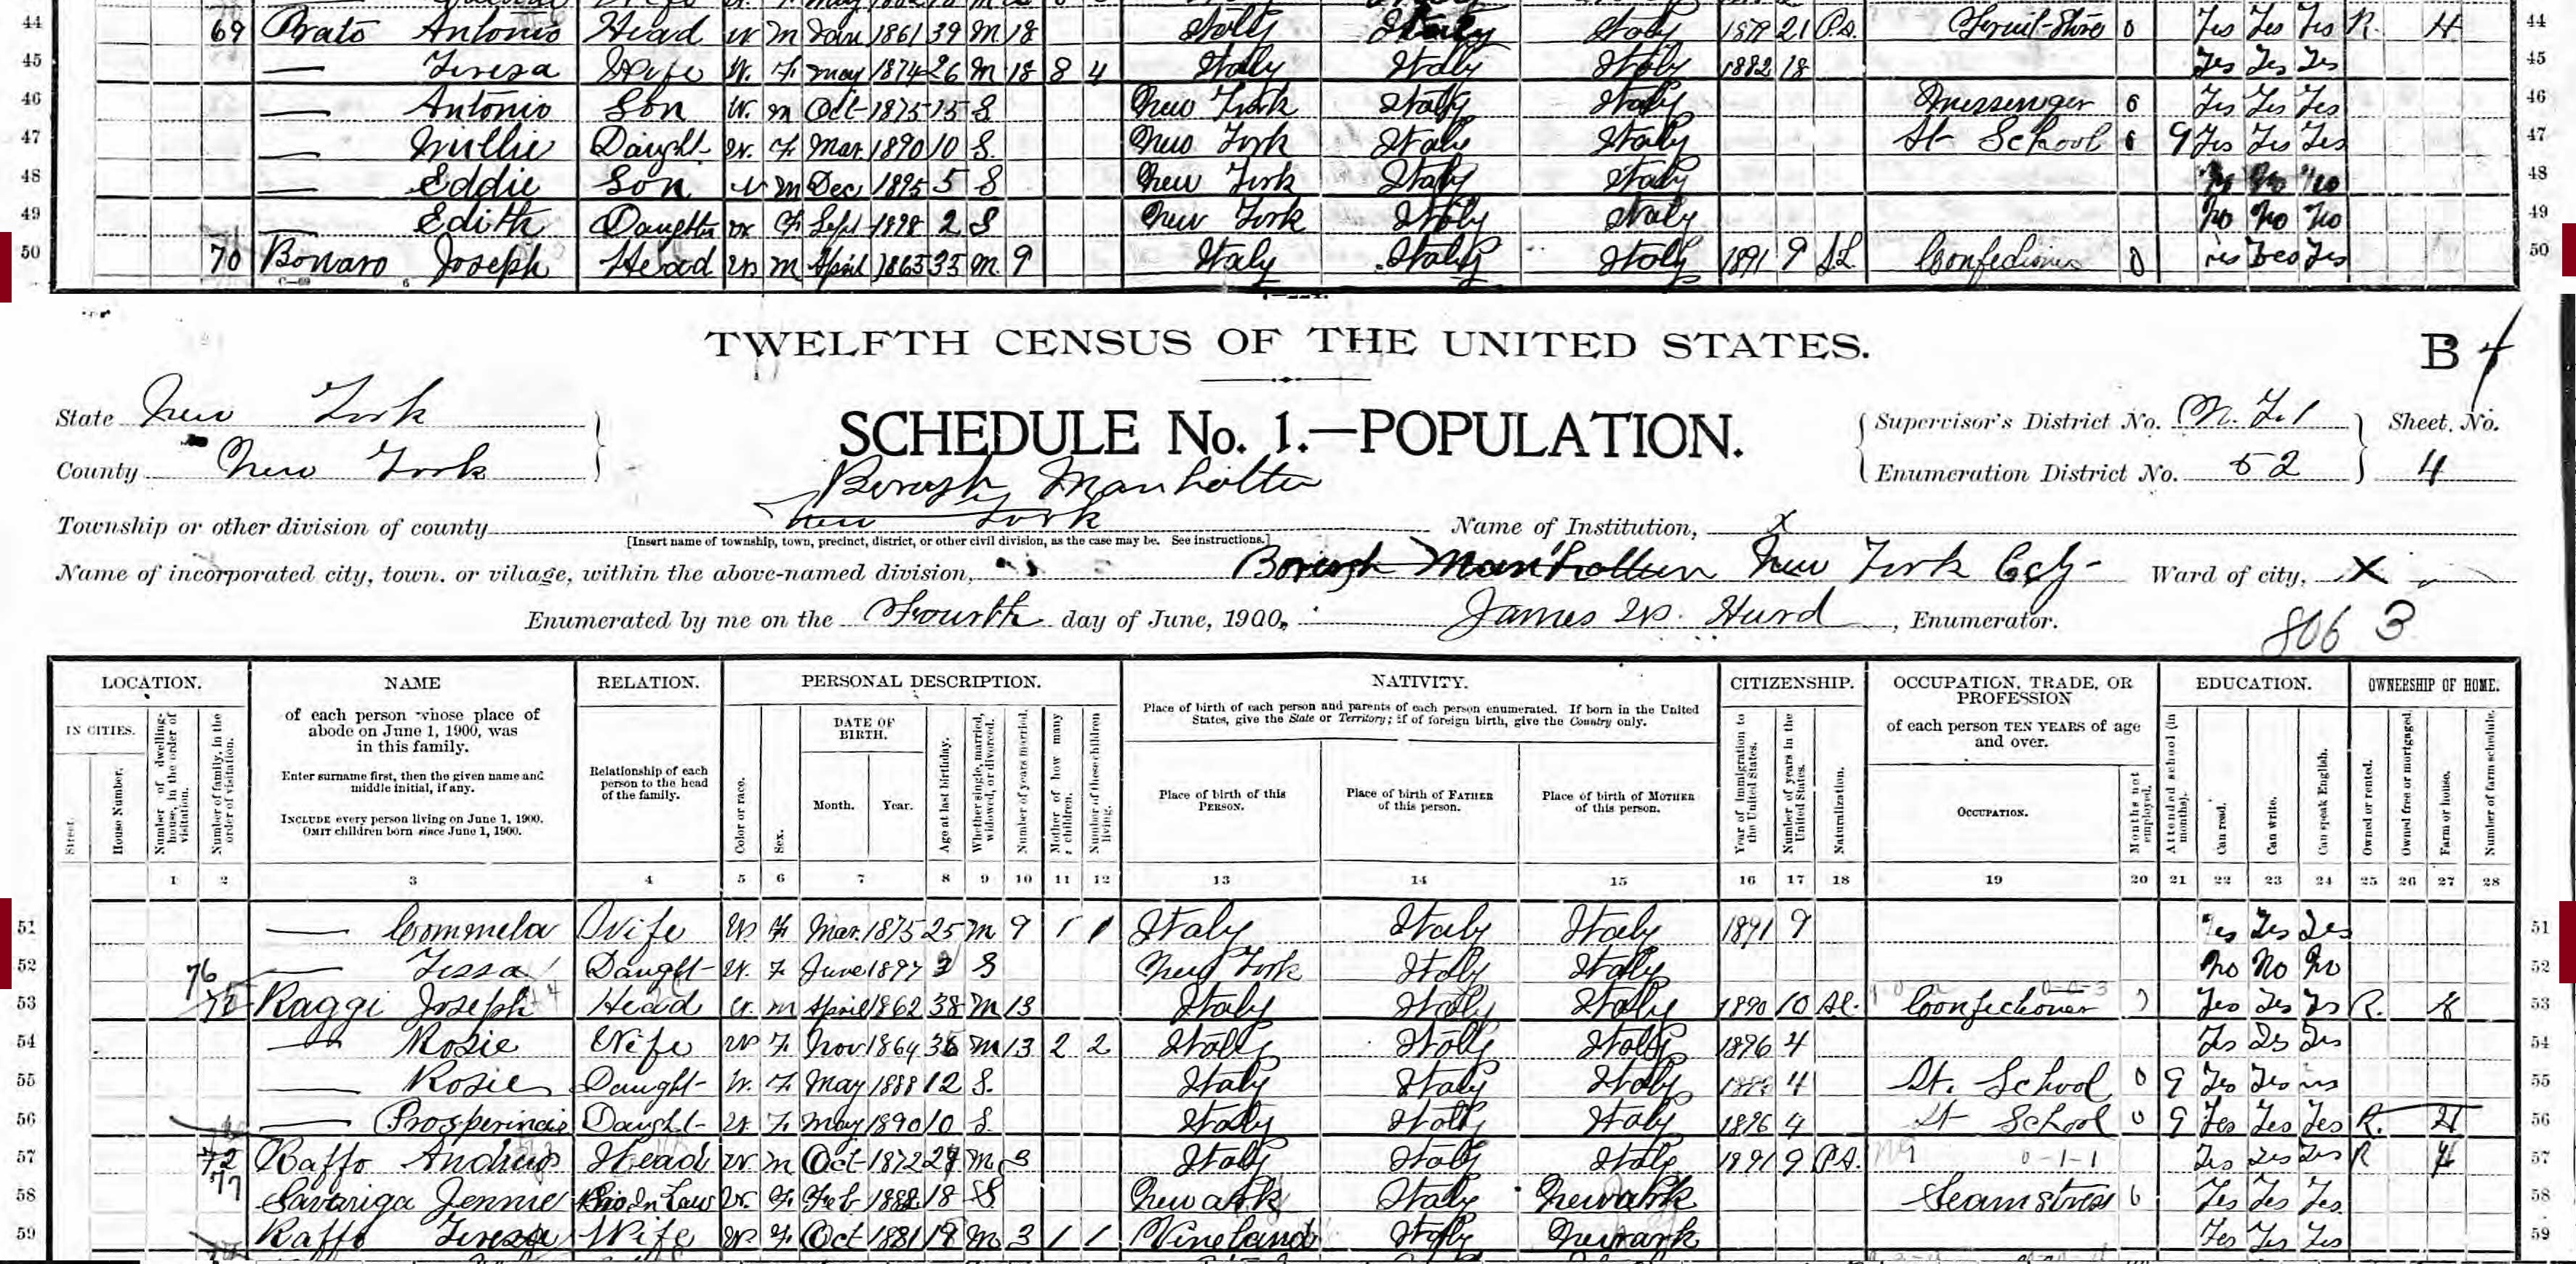 44 69 Prato Antonio Head W M Jan 1861 39 M 18 Italy Italy Italy 1879 21 Pa. Fruit-Store 0 Yes Yes Yes R. H 44
45 — Teresa Wife W. F. May 1874 26 M 18 8 4 Italy Italy Italy 1882 18 Yes Yes Yes 45
46 — Antonio Son W. M Oct 1875 15 S New York Italy Italy Messenger 6 Yes Yes Yes 46
47 — Millie Daught- W. F Mar. 1890 10 S. New York Italy Italy At School 6 9 Yes Yes Yes 47
48 — Eddie Son W M Dec 1895 5 S New York Italy Italy No No No 48
49 — Edith Daughter W F Sept 1898 2 S New York Italy Italy No No No 49
50 70 Bonaro Joseph Head W M April 1865 35 M 9 Italy Italy Italy 1891 9 0 Yes Yes Yes 50
TWELFTH CENSUS OF THE UNITED STATES.
B 4
State New York
SCHEDULE No. 1.—POPULATION.
Supervisor's District No. N.Y.1 Sheet No.
County New York
Enumeration District No. 52 4
Borough Manhattan
Township or other division of county New York Name of Institution, X
[Insert name of township, town, precinct, district, or other civil division, as the case may be. See instructions.]
Name of incorporated city, town, or village, within the above-named division, Borough Manhattan New York City Ward of city, X
Enumerated by me on the Fourth day of June, 1900, James W. Hurd, Enumerator.
806 3
LOCATION. NAME RELATION. PERSONAL DESCRIPTION. NATIVITY. CITIZENSHIP. OCCUPATION, TRADE, OR PROFESSION EDUCATION. OWNERSHIP OF HOME.
IN CITIES.
Street.
House Number.
Number of dwelling-house, in the order of visitation.
Number of family, in the order of visitation.
of each person whose place of abode on June 1, 1900, was in this family.
Enter surname first, then the given name and middle initial, if any.
INCLUDE every person living on June 1, 1900. OMIT children born since June 1, 1900.
Relationship of each person to the head of the family.
Color or race.
Sex.
DATE OF BIRTH.
Month. Year.
Age at last birthday.
Whether single, married, widowed, or divorced.
Number of years married.
Mother of how many children.
Number of these children living.
Place of birth of each person and parents of each person enumerated. If born in the United States, give the State or Territory; if of foreign birth, give the Country only.
Place of birth of this PERSON.
Place of birth of FATHER of this person.
Place of birth of MOTHER of this person.
Year of immigration to the United States.
Number of years in the United States.
Naturalization.
of each person TEN YEARS of age and over.
OCCUPATION.
Months not employed.
Attended school (in months).
Can read.
Can write.
Can speak English.
Owned or rented.
Owned free or mortgaged.
Farm or house.
Number of farm schedule.
1 2 3 4 5 6 7 8 9 10 11 12 13 14 15 16 17 18 19 20 21 22 23 24 25 26 27 28
51 — Commela Wife W F Mar. 1875 25 M 9 1 1 Italy Italy Italy 1891 9 Yes Yes Yes 51
52 — Tessa Daught- W. F June 1897 3 S New York Italy Italy No No No 52
53 76 Raggi Joseph Head W. M April 1862 38 M 13 Italy Italy Italy 1890 10 Al. Confectioner Yes Yes Yes R. H 53
54 — Rosie Wife W F Nov 1864 35 M 13 2 2 Italy Italy Italy 1896 4 Yes Yes Yes 54
55 — Rosie Daught- W. F. May 1888 12 S. Italy Italy Italy 4 At. School 0 9 Yes Yes Yes 55
56 — Daught- W. F May 1890 10 S. Italy Italy Italy 1896 4 At School 0 9 Yes Yes Yes R. H 56
57 72 77 Raffo Andrew Head W M Oct 1872 27 M 3 Italy Italy Italy 1891 9 PA. 0-1-1 Yes Yes Yes R H 57
58 Savariga Jennie Sis In Law W. F. Feb 1882 18 S Newark Italy Newark Seamstress 6 Yes Yes Yes. 58
59 Raffo Teresa Wife W F. Oct 1881 18 M 3 1 1 Vineland Italy Newark Yes Yes Yes 59